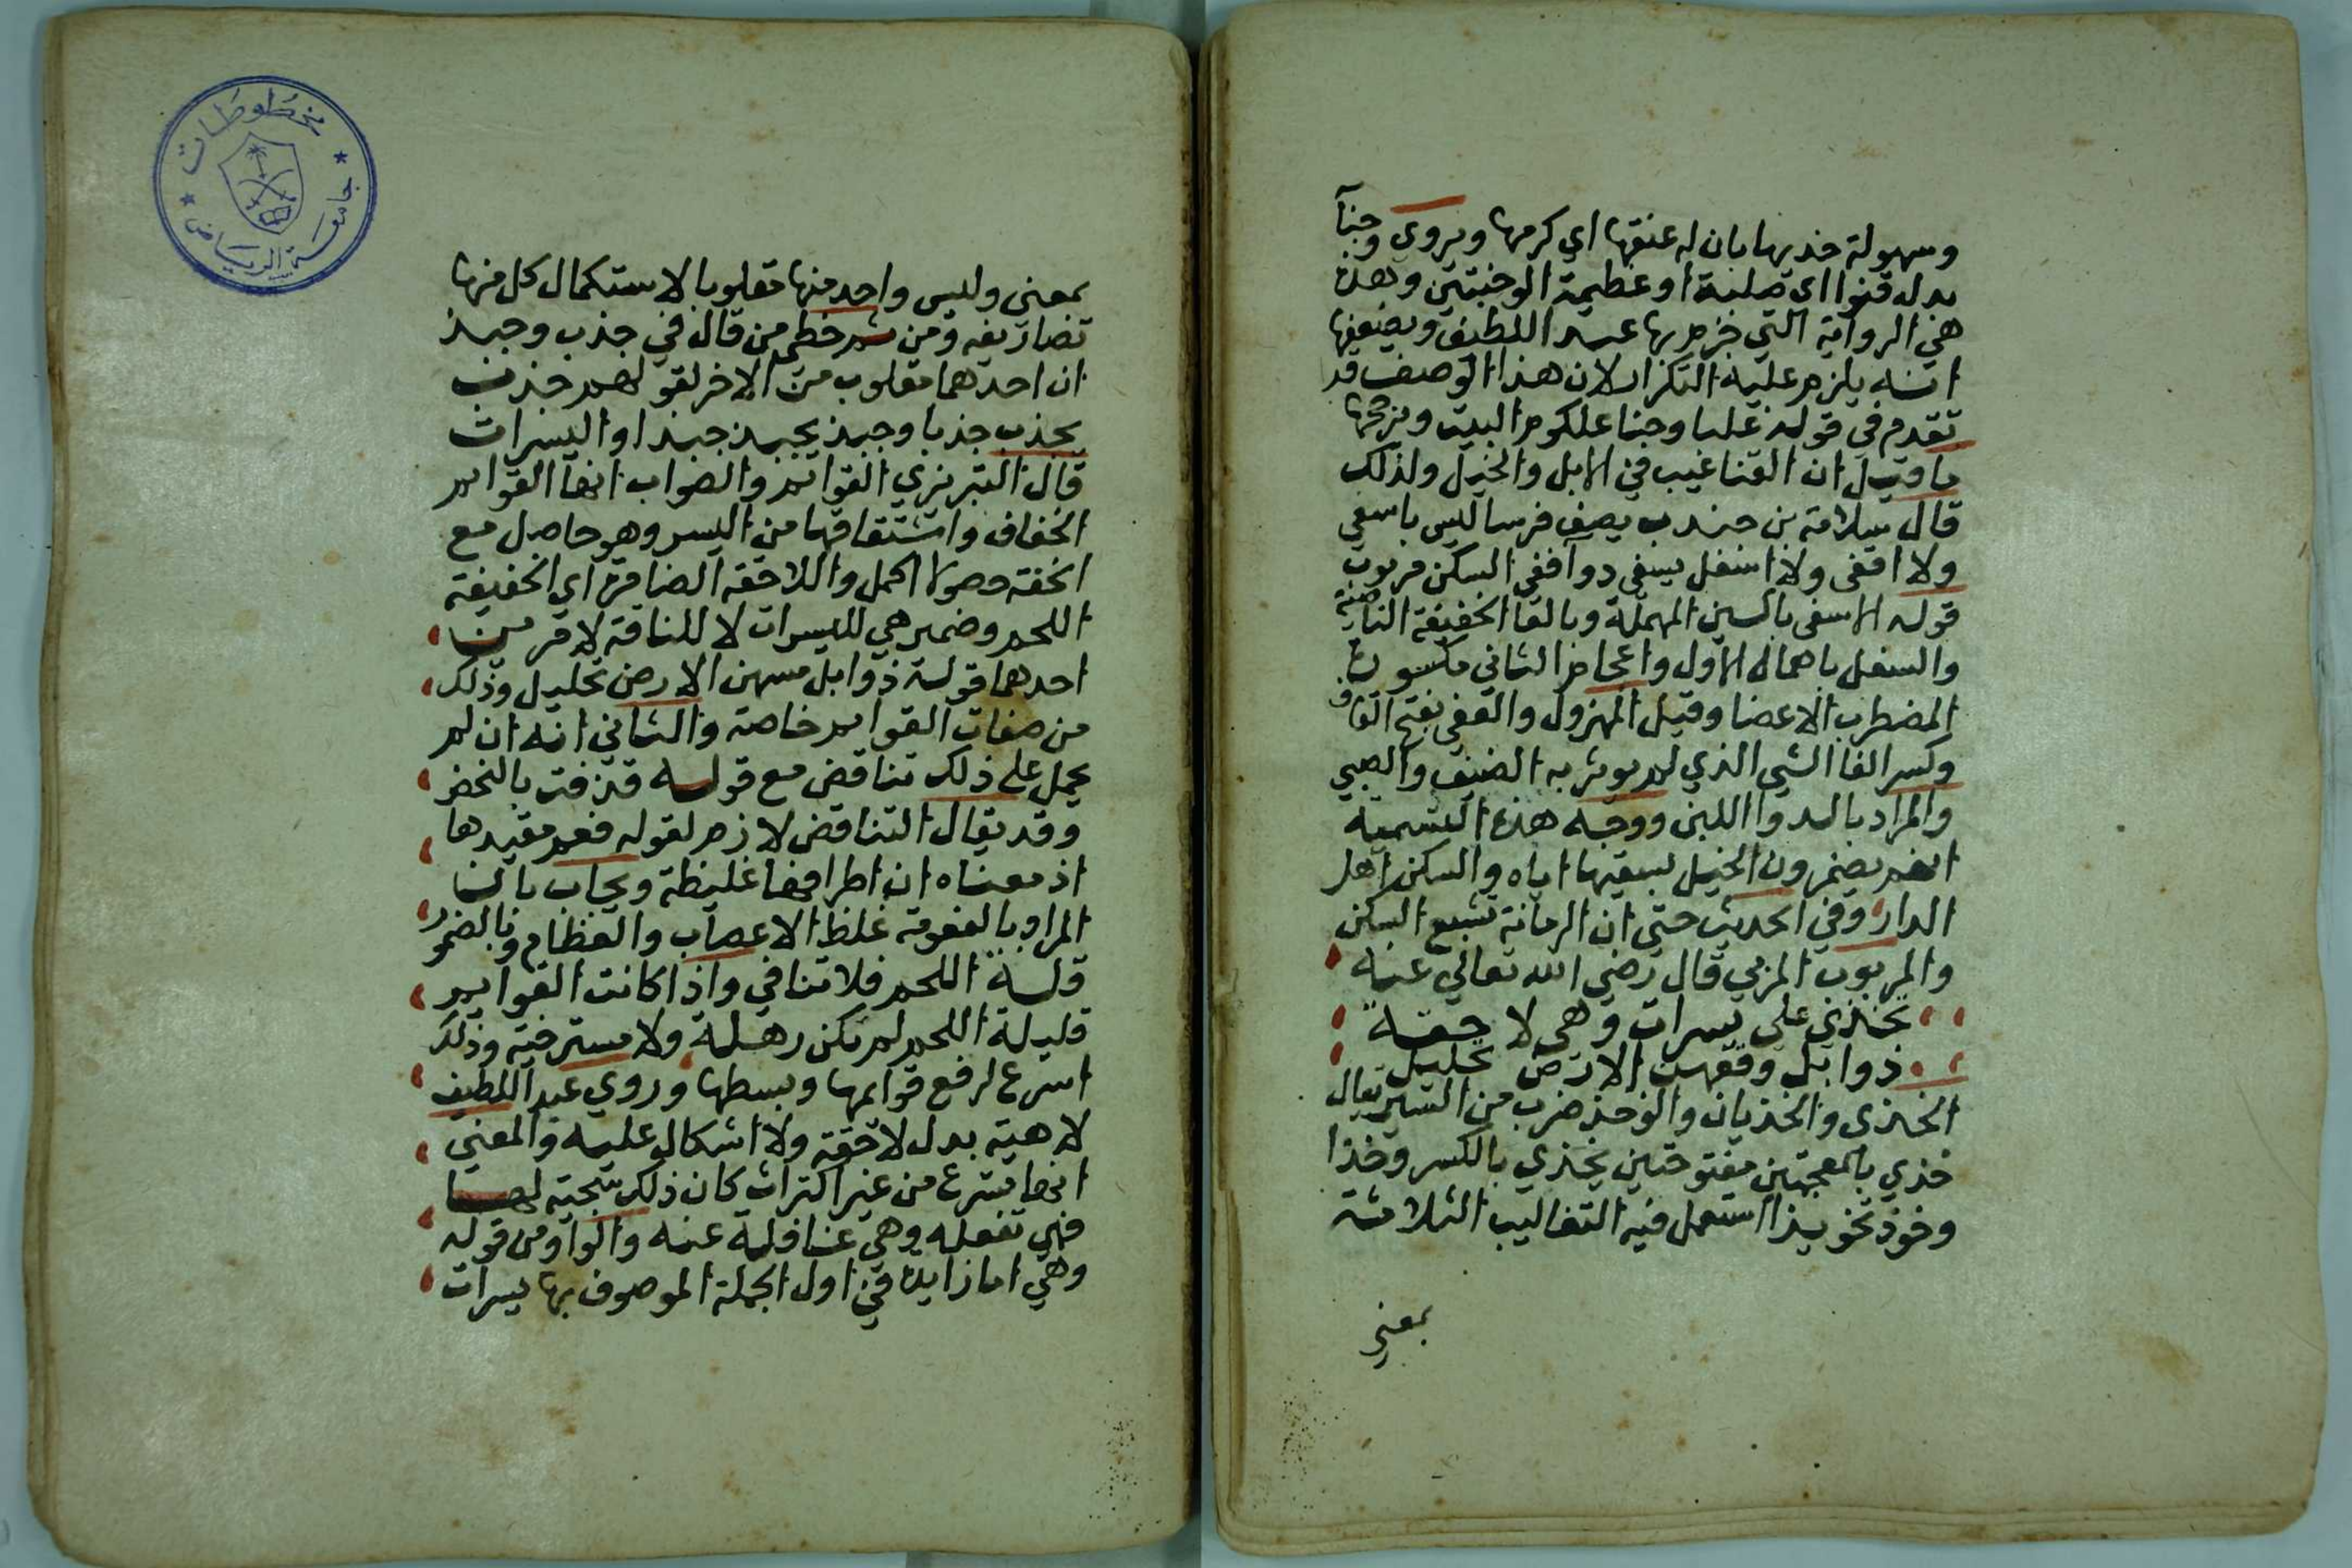 وسهولة خديها بان له عنقها اي كرمها ويروى وجنآ
بدل قنوا اي صلبة او عظيمة الوجنتين وهذه
هي الرواية التي جزم بها عبد اللطيف ويضعفها
انه يلزم عليه التكرار لان هذا الوصف قد
تقدم في قوله غلبا وجنا علكوم البيت ويرجحها
ما قيل ان القنا عيب في الابل والخيل ولذلك
قال سلامة بن جندب يصف فرسا ليس باسفى
ولا اقفى ولا اسغل يسقى دوآ قفى السكن مربوب
قوله الاسفى بالسين المهملة وبالفا الخفيفة الناصية
والسغل باهمال الاول واعجام الثاني مكسورة
المضطرب الاعضا وقيل المهزول والقفى بفتح القاف
وكسر الفا الشي الذي لم يوثر به الضيف والصبي
والمراد بالدوا اللبن ووجه هذه التسمية
انهم يضمرون الخيل بسقيها اياه والسكن اهل
الدار وفي الحديث حتى ان الرمانة تشبع السكن
والمربوب المربي قال رضي الله تعالى عنه
تخذى على يسرات وهي لاحقة
ذوابل وقعهن الارض تحليل
الخذى والخذيان والوخذ ضرب من السير يقال
خذي بالمعجمتين مفتوحتين يخذي بالكسر وخذا
وخوذ تخويذا استعمل فيه التقاليب الثلاثة
بمعنى
بمعنى وليس واحد منها مقلوبا لاستكمال كل منها
تصاريفه ومن ثم خطي من قال في جذب وجبذ
ان احدهما مقلوب من الاخر لقولهم جذب
يجذب جذبا وجبذ يجبذ جبذا واليسرات
قال التبريزي القوائم والصواب انها القوايم
الخفاف واشتقاقها من اليسر وهو حاصل مع
الخفة حصولا اكمل واللاحقة الضامرة اي الخفيفة
اللحم وضمير هي لليسرات لا للناقة لامرين
احدهما قوله ذوابل مسهن الارض تحليل وذلك
من صفات القوايم خاصة والثاني انه ان لم
يحمل على ذلك تناقض مع قوله قذفت بالنحض
وقد يقال التناقض لازم لقوله فعم مقيدها
اذ معناه ان اطرافها غليظة ويجاب بان
المراد بالفعومة غلظ الاعصاب والعظام وبالضمور
قلة اللحم فلا تنافي واذا كانت القوايم
قليلة اللحم لم تكن رهلة ولا مسترخية وذلك
اسرع لرفع قوايمها وبسطها وروي عبد اللطيف
لاهية بدل لاحقة ولا اشكال عليه والمعنى
انها تسرع من غير اكتراث كان ذلك سجية لها
فهي تفعله وهي غافلة عنه والواو من قوله
وهي اما زايدة في اول الجملة الموصوف بها يسرات
مخطوطات
جامعة الرياض